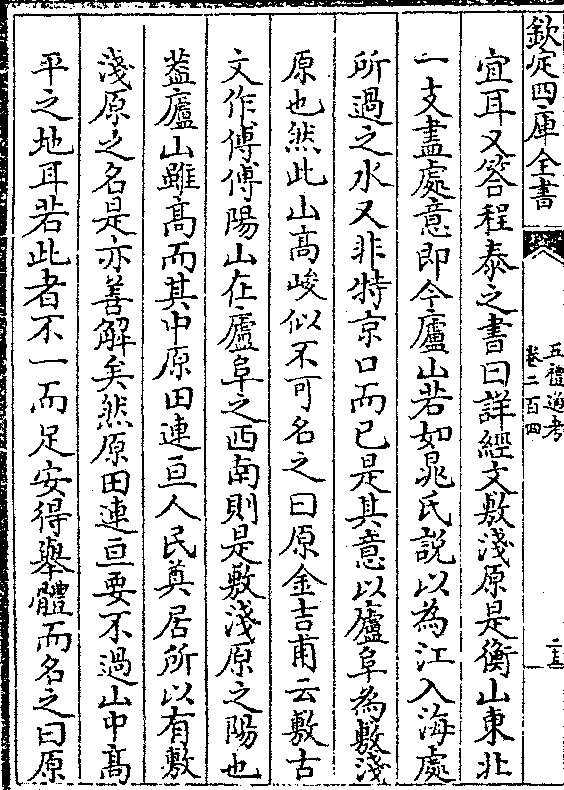 欽定四庫全書
五禮通考
卷二百四
二五
宜耳又答程泰之書曰詳經文敷淺原是衡山東北
一支盡處意即今廬山若如晁氏説以為江入海處
所過之水又非特京口而已是其意以廬阜為敷淺
原也然此山高峻似不可名之曰原金吉甫云敷古
文作傅傅陽山在廬阜之西南則是敷淺原之陽也
葢廬山雖高而其中原田連亘人民奠居所以有敷
淺原之名是亦善解矣然原田連亘要不過山中髙
平之地耳若此者不一而足安得舉體而名之曰原